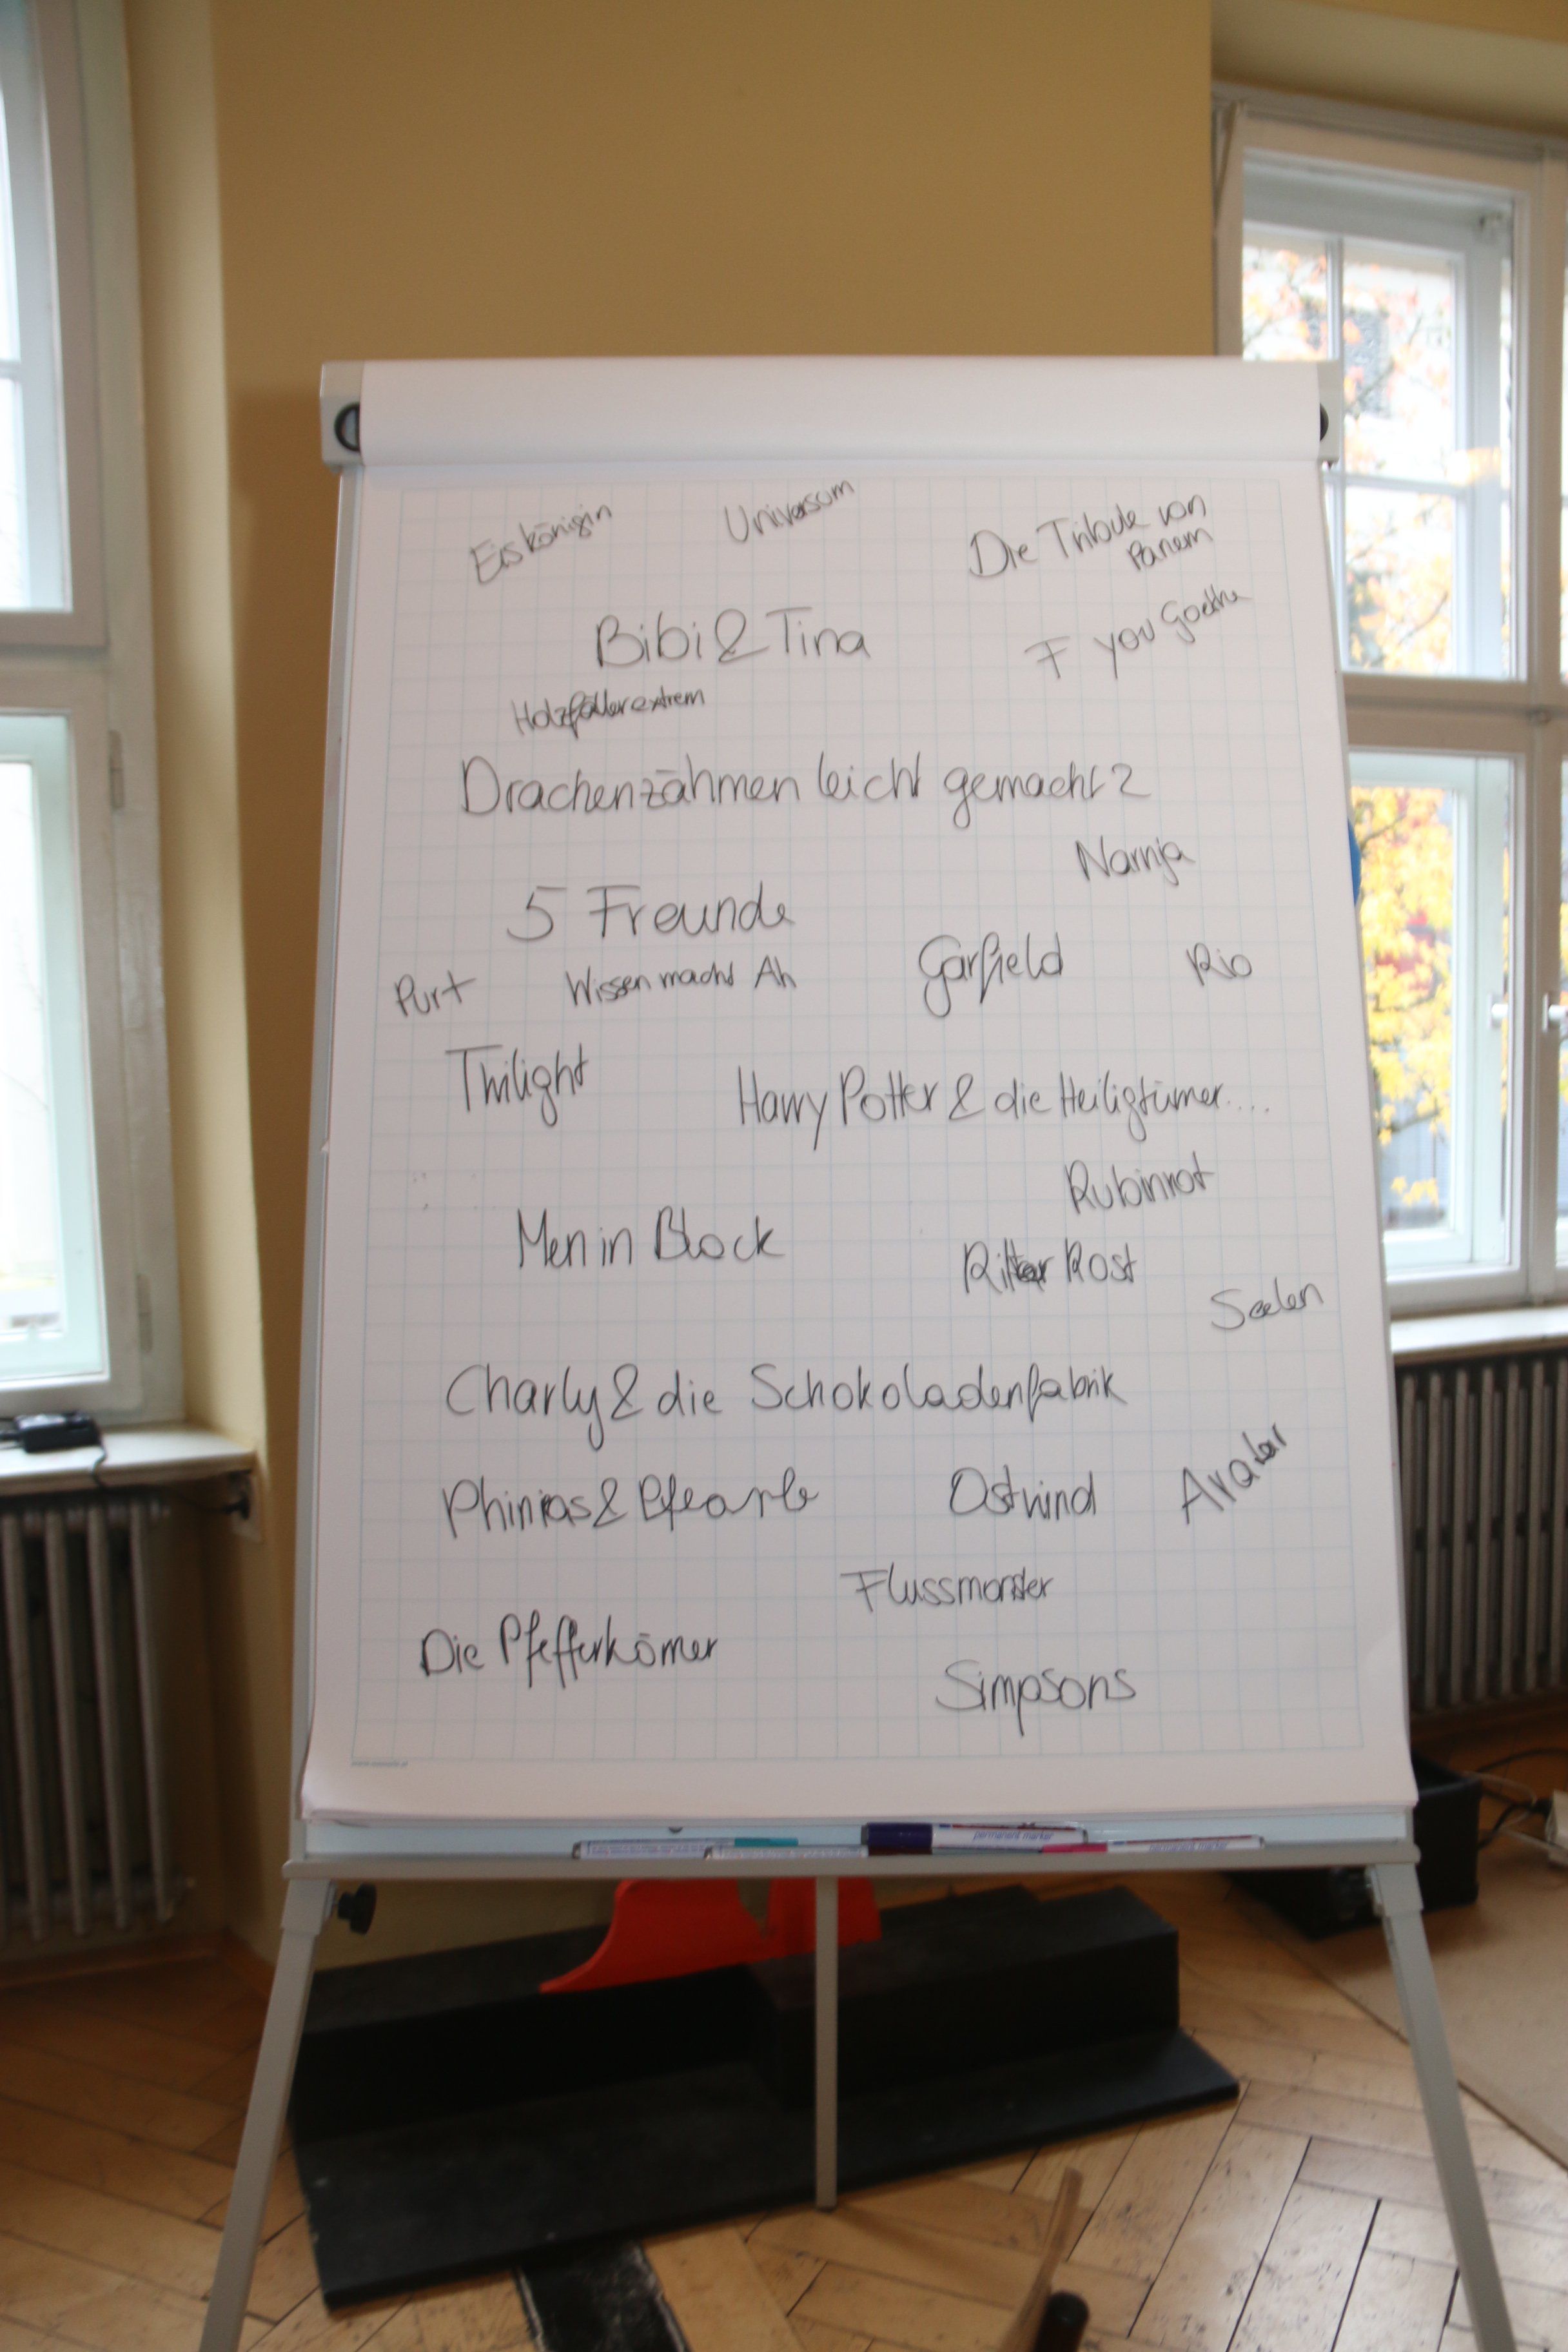 Eiskönigin
Universum
Die Tribute von
Panem
Bibi & Tina
F you Goethe
Holzfäller extrem
Drachenzähmen leicht gemacht 2
Narnja
5 Freunde
Purt
Wissen macht Ah
Garfield
Rio
Twilight
Harry Potter & die Heiligtümer....
Rubinrot
Men in Black
Ritter Rost
Seelen
Charly & die Schokoladenfabrik
Phinias &
Ostwind
Avatar
Flussmonster
Die Pfefferkörner
Simpsons
permanent marker
permanent marker